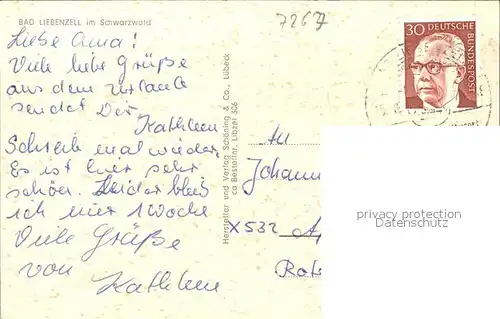 BAD LIEBENZELL im Schwarzwald
7267
30 DEUTSCHE BUNDESPOST
Liebe Oma!
Viele liebe Grüße
aus dem Urlaub
sendet Dir
Kathleen
Schreib mal wieder.
Es ist hier sehr
schön. Leider bleib
ich nur 1 Woche
Viele Grüße
von
Kathleen
Hersteller und Verlag Schöning & Co., Lübeck
Bestellnr. Libzel 306
An
Johann
X532 Ap
Rob
privacy protection
Datenschutz